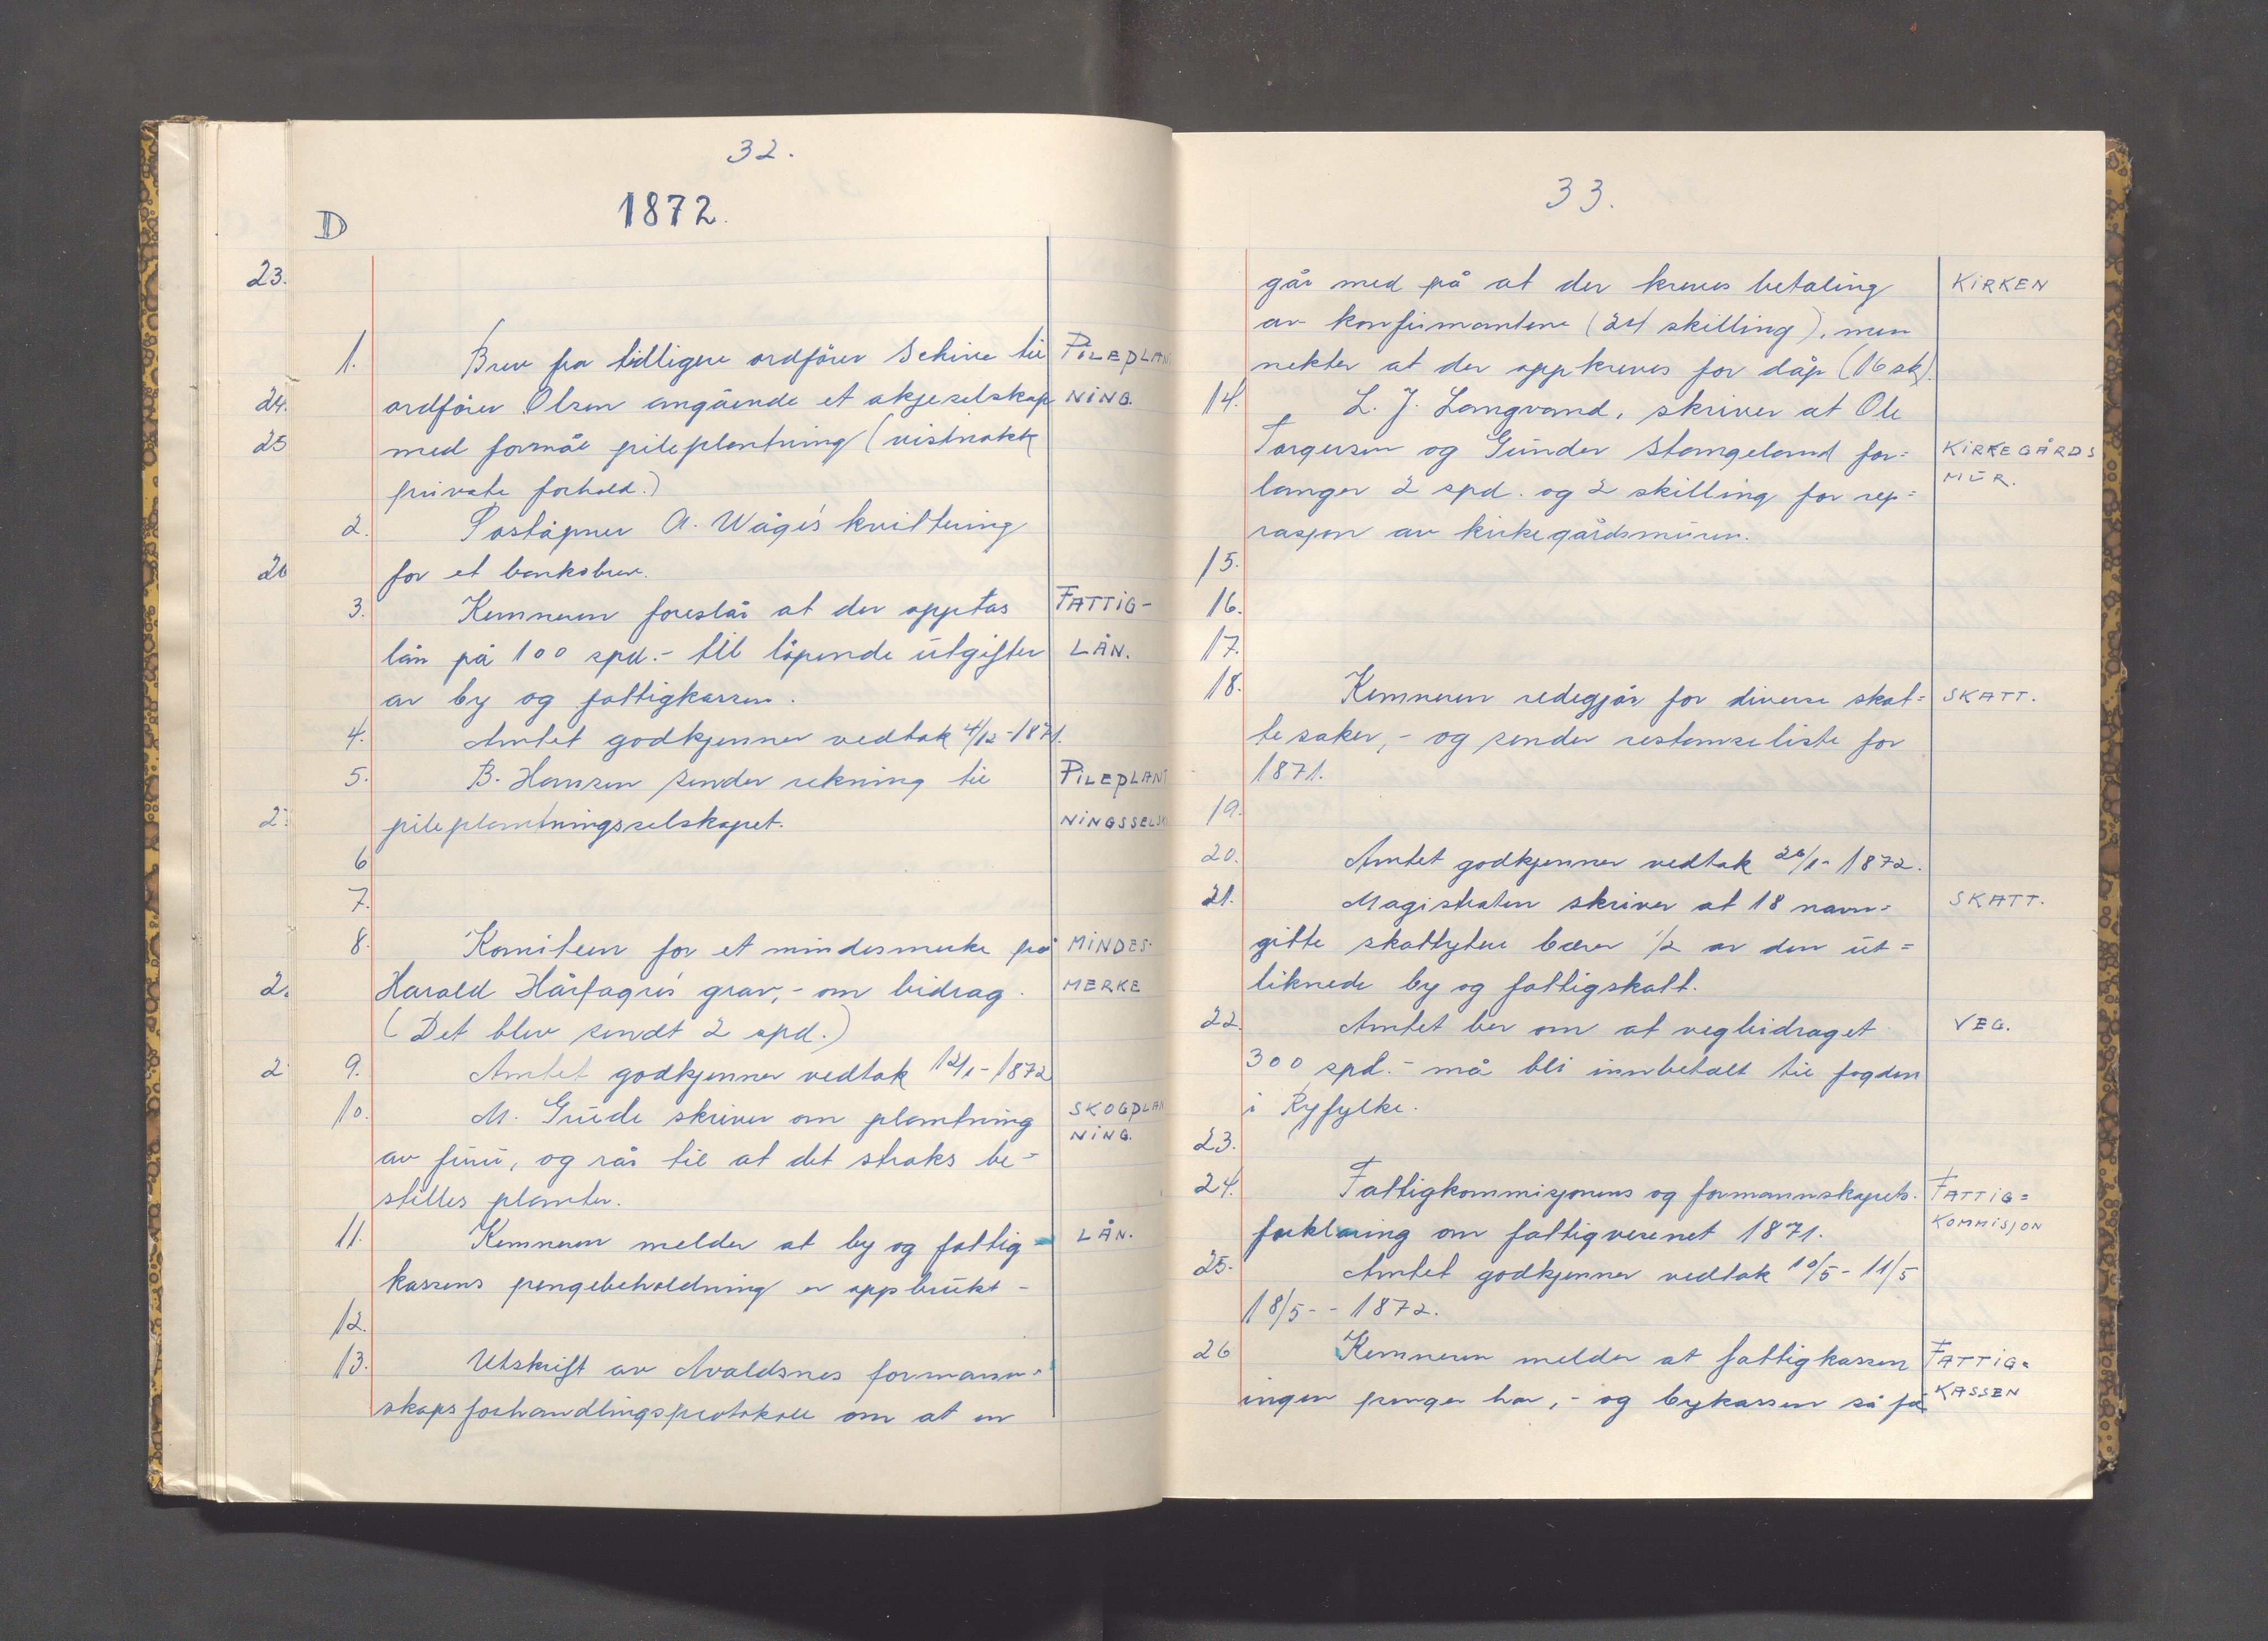 32.
D
1872.
1. Brev fra tidligere ordfører Schiee til PILEPLAN
ordfører Olsen angående et akjeselskap NING.
med formål pileplantning (vistnokk
private forhold.)
2. Poståpner A. Våge's kvittering
for et banksbrev.
3. Kemneren foreslår at der opptas FATTIG-
lån på 100 spd.- til løpende utgifter LÅN.
av by og fattigkassen.
4. Amtet godkjenner vedtak 4/12-1871.
5. B. Hansen sender rekning til PILEPLANT
pileplantningsselskapet. NINGSSELSK
6
7.
8. Komiteen for et mindesmerke på MINDES-
Harald Hårfagre's grav,- om bidrag. MERKE
(Det blev sendt 2 spd.)
9. Amtet godkjenner vedtak 12/1-1872
10. M. Grude skriver om plantning SKOGPLAN
NING.
av furu, og rår til at det straks be-
stilles planter.
11. Kemneren melder at by og fattig- LÅN.
kassens pengebeholdning er oppbrukt -
12.
13. Utskrift av Avaldsnes formann-
skapsforhandlingsprotokoll om at en
23.
24.
25
26
2
2.
2
33.
går med på at der kreves betaling KIRKEN
av konfirmantene (24 skilling), men
nekter at der oppkreves for dåp (16 sk).
14. L. J. Langvand, skriver at Ole
Torgersen og Gunder Stangeland for= KIRKEGÅRDS
langer 2 spd. og 2 skilling for rep= MUR.
rasjon av kirkegårdsmuren.
15.
16.
17.
18. Kemneren redegjør for diverse skat= SKATT.
tesaker,- og sender restanseliste for
1871.
19.
20. Amtet godkjenner vedtak 26/1-1872.
21. Magistraten skriver at 18 navn= SKATT.
gitte skattytere bærer 1/2 av den ut=
liknede by og fattigskatt.
22. Amtet ber om at vegbidraget VEG.
300 spd.- må bli innbetalt til fogden
i Ryfylke.
23.
24. Fattigkommisjonens og formannskapets FATTIG=
forklaring om fattigvesenet 1871. KOMMISJON
25. Amtet godkjenner vedtak 10/5 - 11/5
18/5 - - 1872.
26 Kemneren melder at fattigkassen FATTIG=
ingen penger har,- og bykassen så få KASSEN